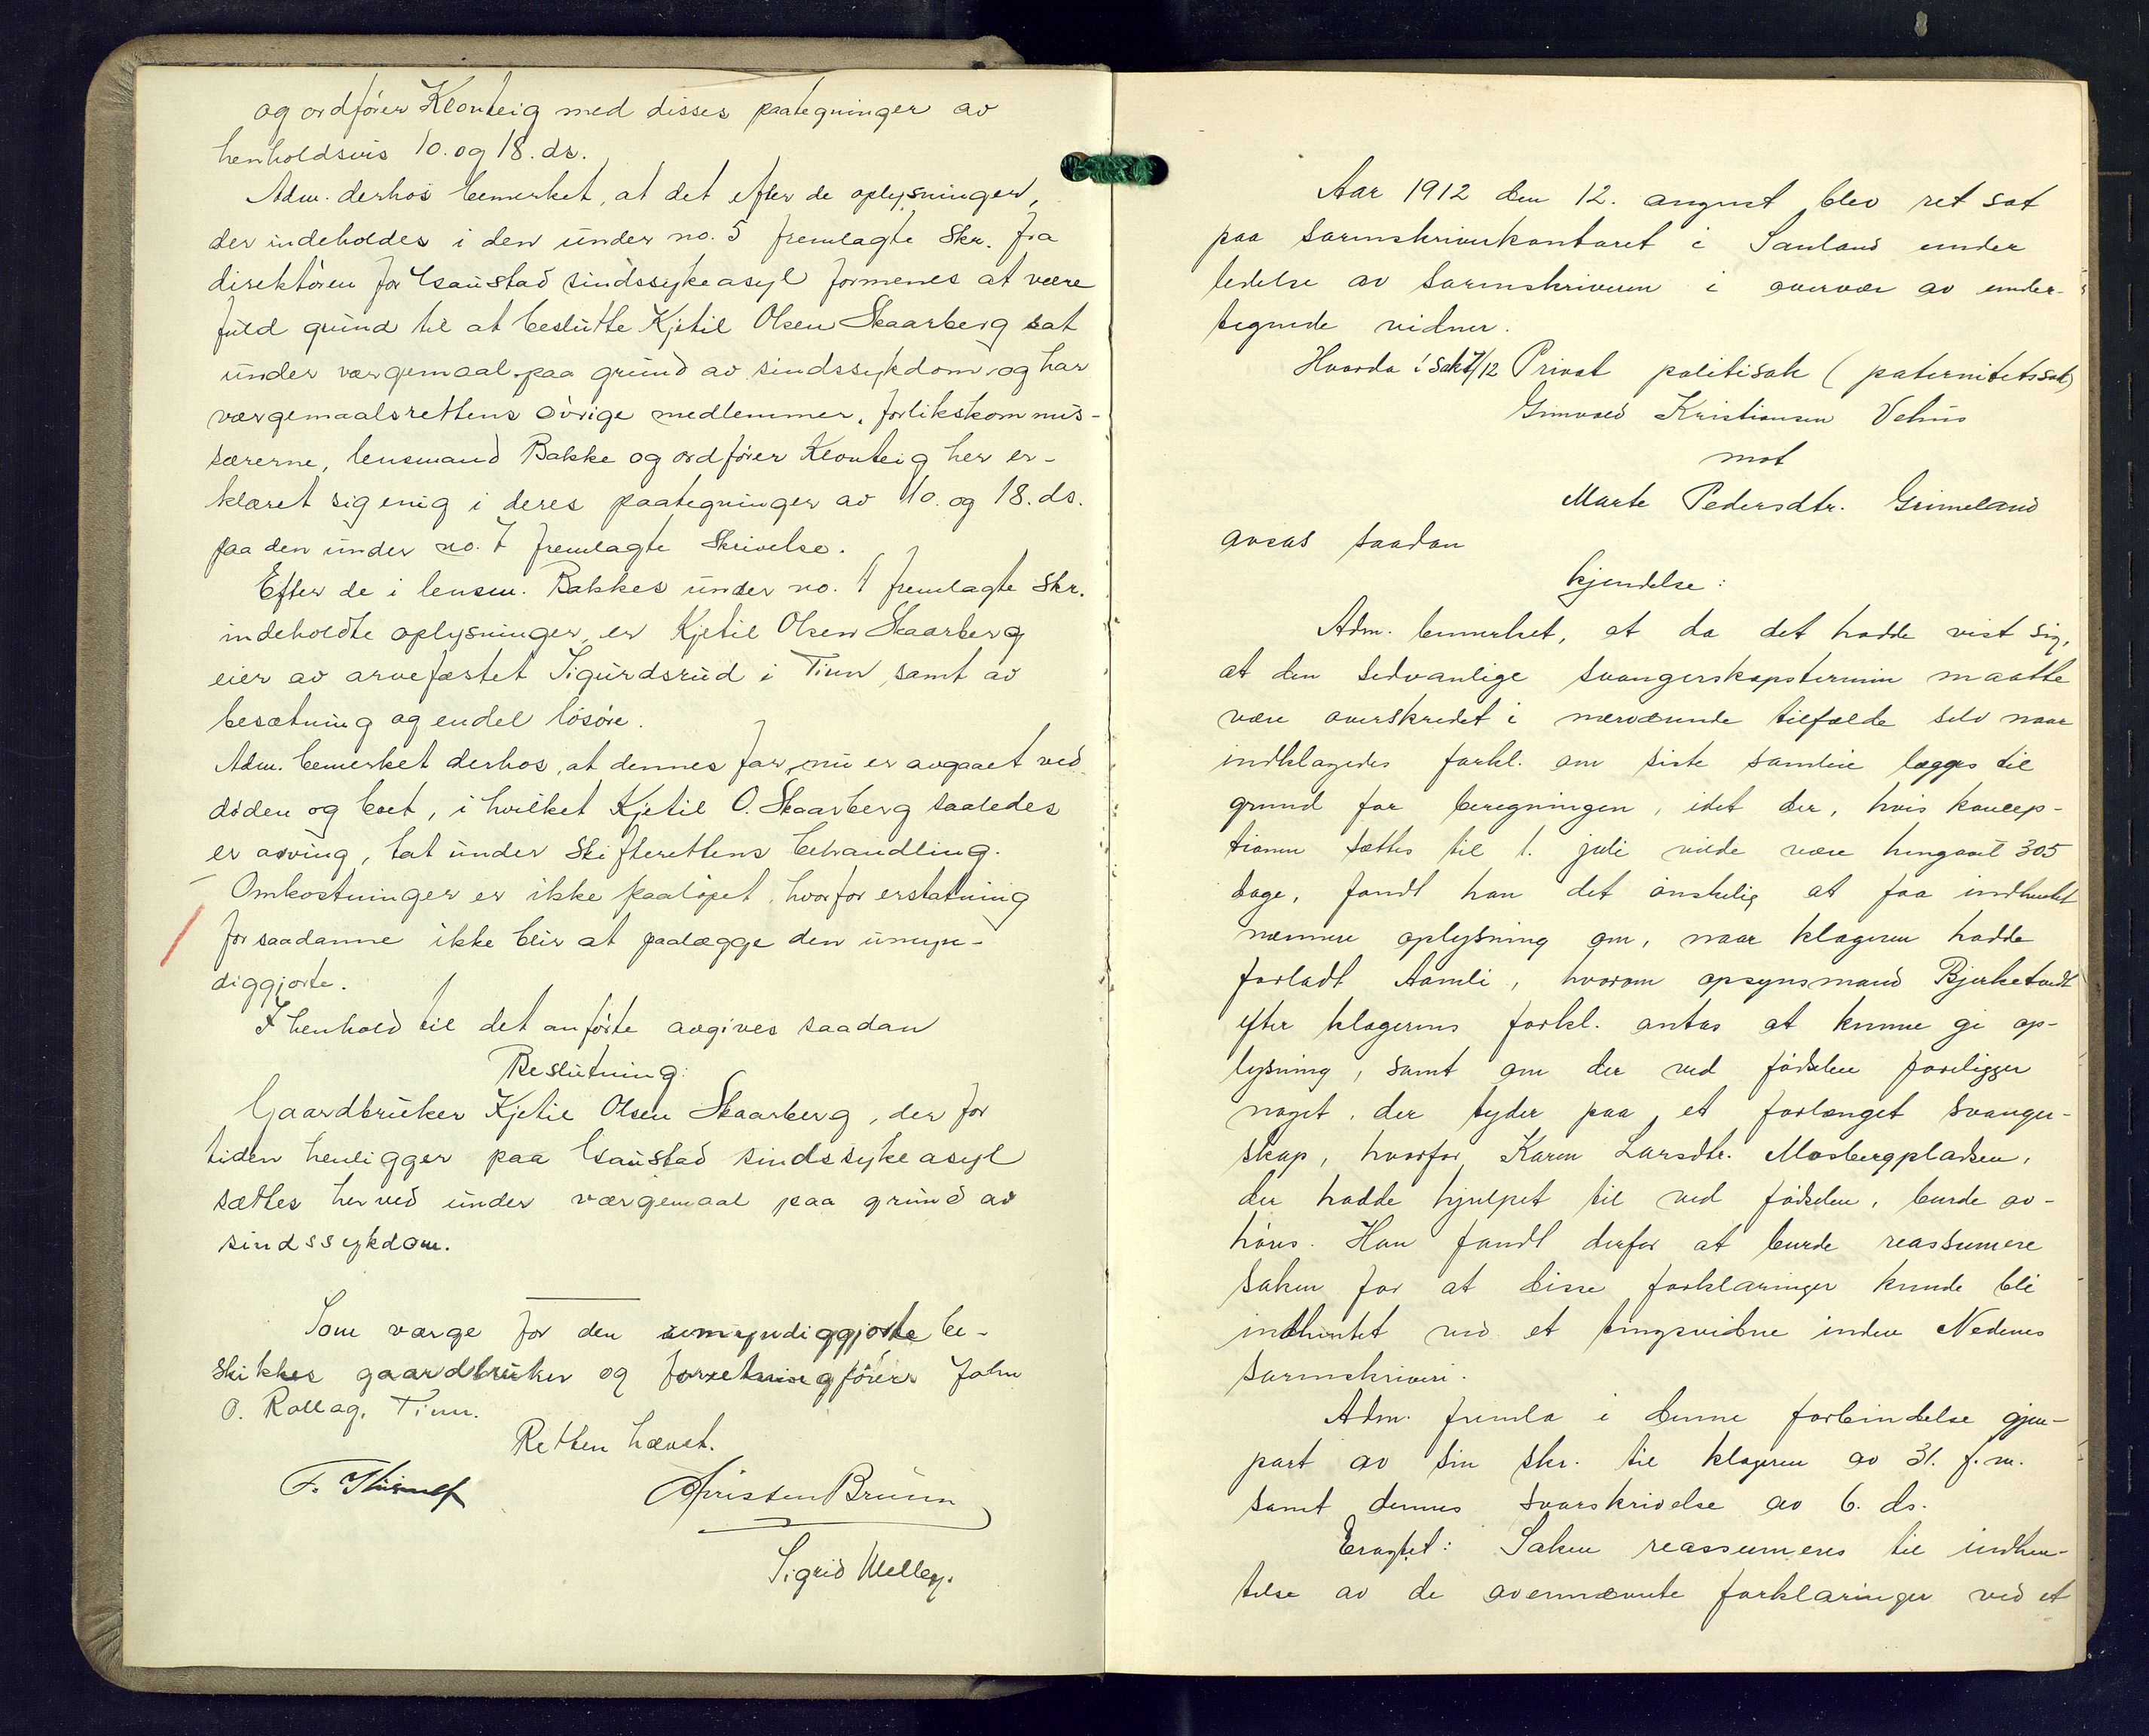 og ordfører Klonteig med disses paategninger av
henholdsvis 10. og 18. ds.
Adm. derhos bemerket, at det efter de oplysninger,
der indeholdes i den under no. 5 fremlagte Skr. fra
direktøren for Gaustad sindssykeasyl formenes at være
fuld grund til at beslutte Kjetil Olsen Skaarberg sat
under værgemaal paa grund av sindssykdom og har
værgemaalsrettens øvrige medlemmer, forlikskommis-
særerne, lensmand Bakke og ordfører Klonteig her er-
klæret sig enig i deres paategninger av 10. og 18. ds.
paa den under no. 7 fremlagte Skrivelse.
Efter de i lensm. Bakkes under no. 1 fremlagte Skr.
indeholdte oplysninger, er Kjetil Olsen Skaarberg
eier av arvefæstet Sigurdsrud i Tinn samt av
besætning og endel løsøre.
Adm. bemerket derhos, at dennes far nu er avgaaet ved
døden og boet, i hvilket Kjetil O. Skaarberg saaledes
er arving, tat under Skifterettens behandling.
Omkostninger er ikke paaløpet, hvorfor erstatning
for saadanne ikke blir at paalægge den umyn-
diggjorte.
I henhold til det anførte avgives saadan
Beslutning:
Gaardbruker Kjetil Olsen Skaarberg, der for
tiden henligger paa Gaustad sindssykeasyl
sættes herved under værgemaal paa grund av
sindssykdom.
Som værge for den umyndiggjorte be-
skikkes gaardbruker og forretningsfører John
O. Rollag, Tinn.
Retten hævet.
Christen Bruun
Sigrid
Aar 1912 den 12. august blev ret sat
paa Sorenskriverkontoret i Sauland under
ledelse av Sorenskriveren i overvær av under-
tegnede vidner.
Hvorda i Sak 7/12 Privat politisak (paternitetssak)
Gunvald Kristiansen Vehus
mot
Marte Pedersdtr. Grimeland
avsas saadan
kjendelse:
Adm. bemerket, at da det hadde vist sig,
at den sedvanlige svangerskapstermin maatte
være overskredet i nærværende tilfælde selv naar
indklagedes forkl. om siste samleie lægges til
grund for beregningen, idet der, hvis koncep-
tionen sættes til 1. juli vilde være hengaat 305
dage, fandt han det ønskelig at faa indhentet
nærmere oplysning om, naar klageren hadde
forladt Aamli, hvorom opsynsmand Bjerketvedt
efter klagerens forkl. antas at kunne gi op-
lysning, samt om der ved fødselen foreligger
noget, der tyder paa et forlænget svanger-
skap, hvorfor Karen Larsdtr. Mosbergpladsen,
der hadde hjulpet til ved fødselen, burde av-
høres. Han fandt derfor at burde reassumere
saken for at disse forklaringer kunde bli
indhentet ved et tingsvidne inden Nedenes
sorenskriveri.
Adm. fremla i denne forbindelse gjen-
part av sin skr. til klageren av 31. f.m.
samt dennes svarskrivelse av 6. ds.
Eragtet: Saken reassumeres til indhen-
telse av de ovennævnte forklaringer ved et